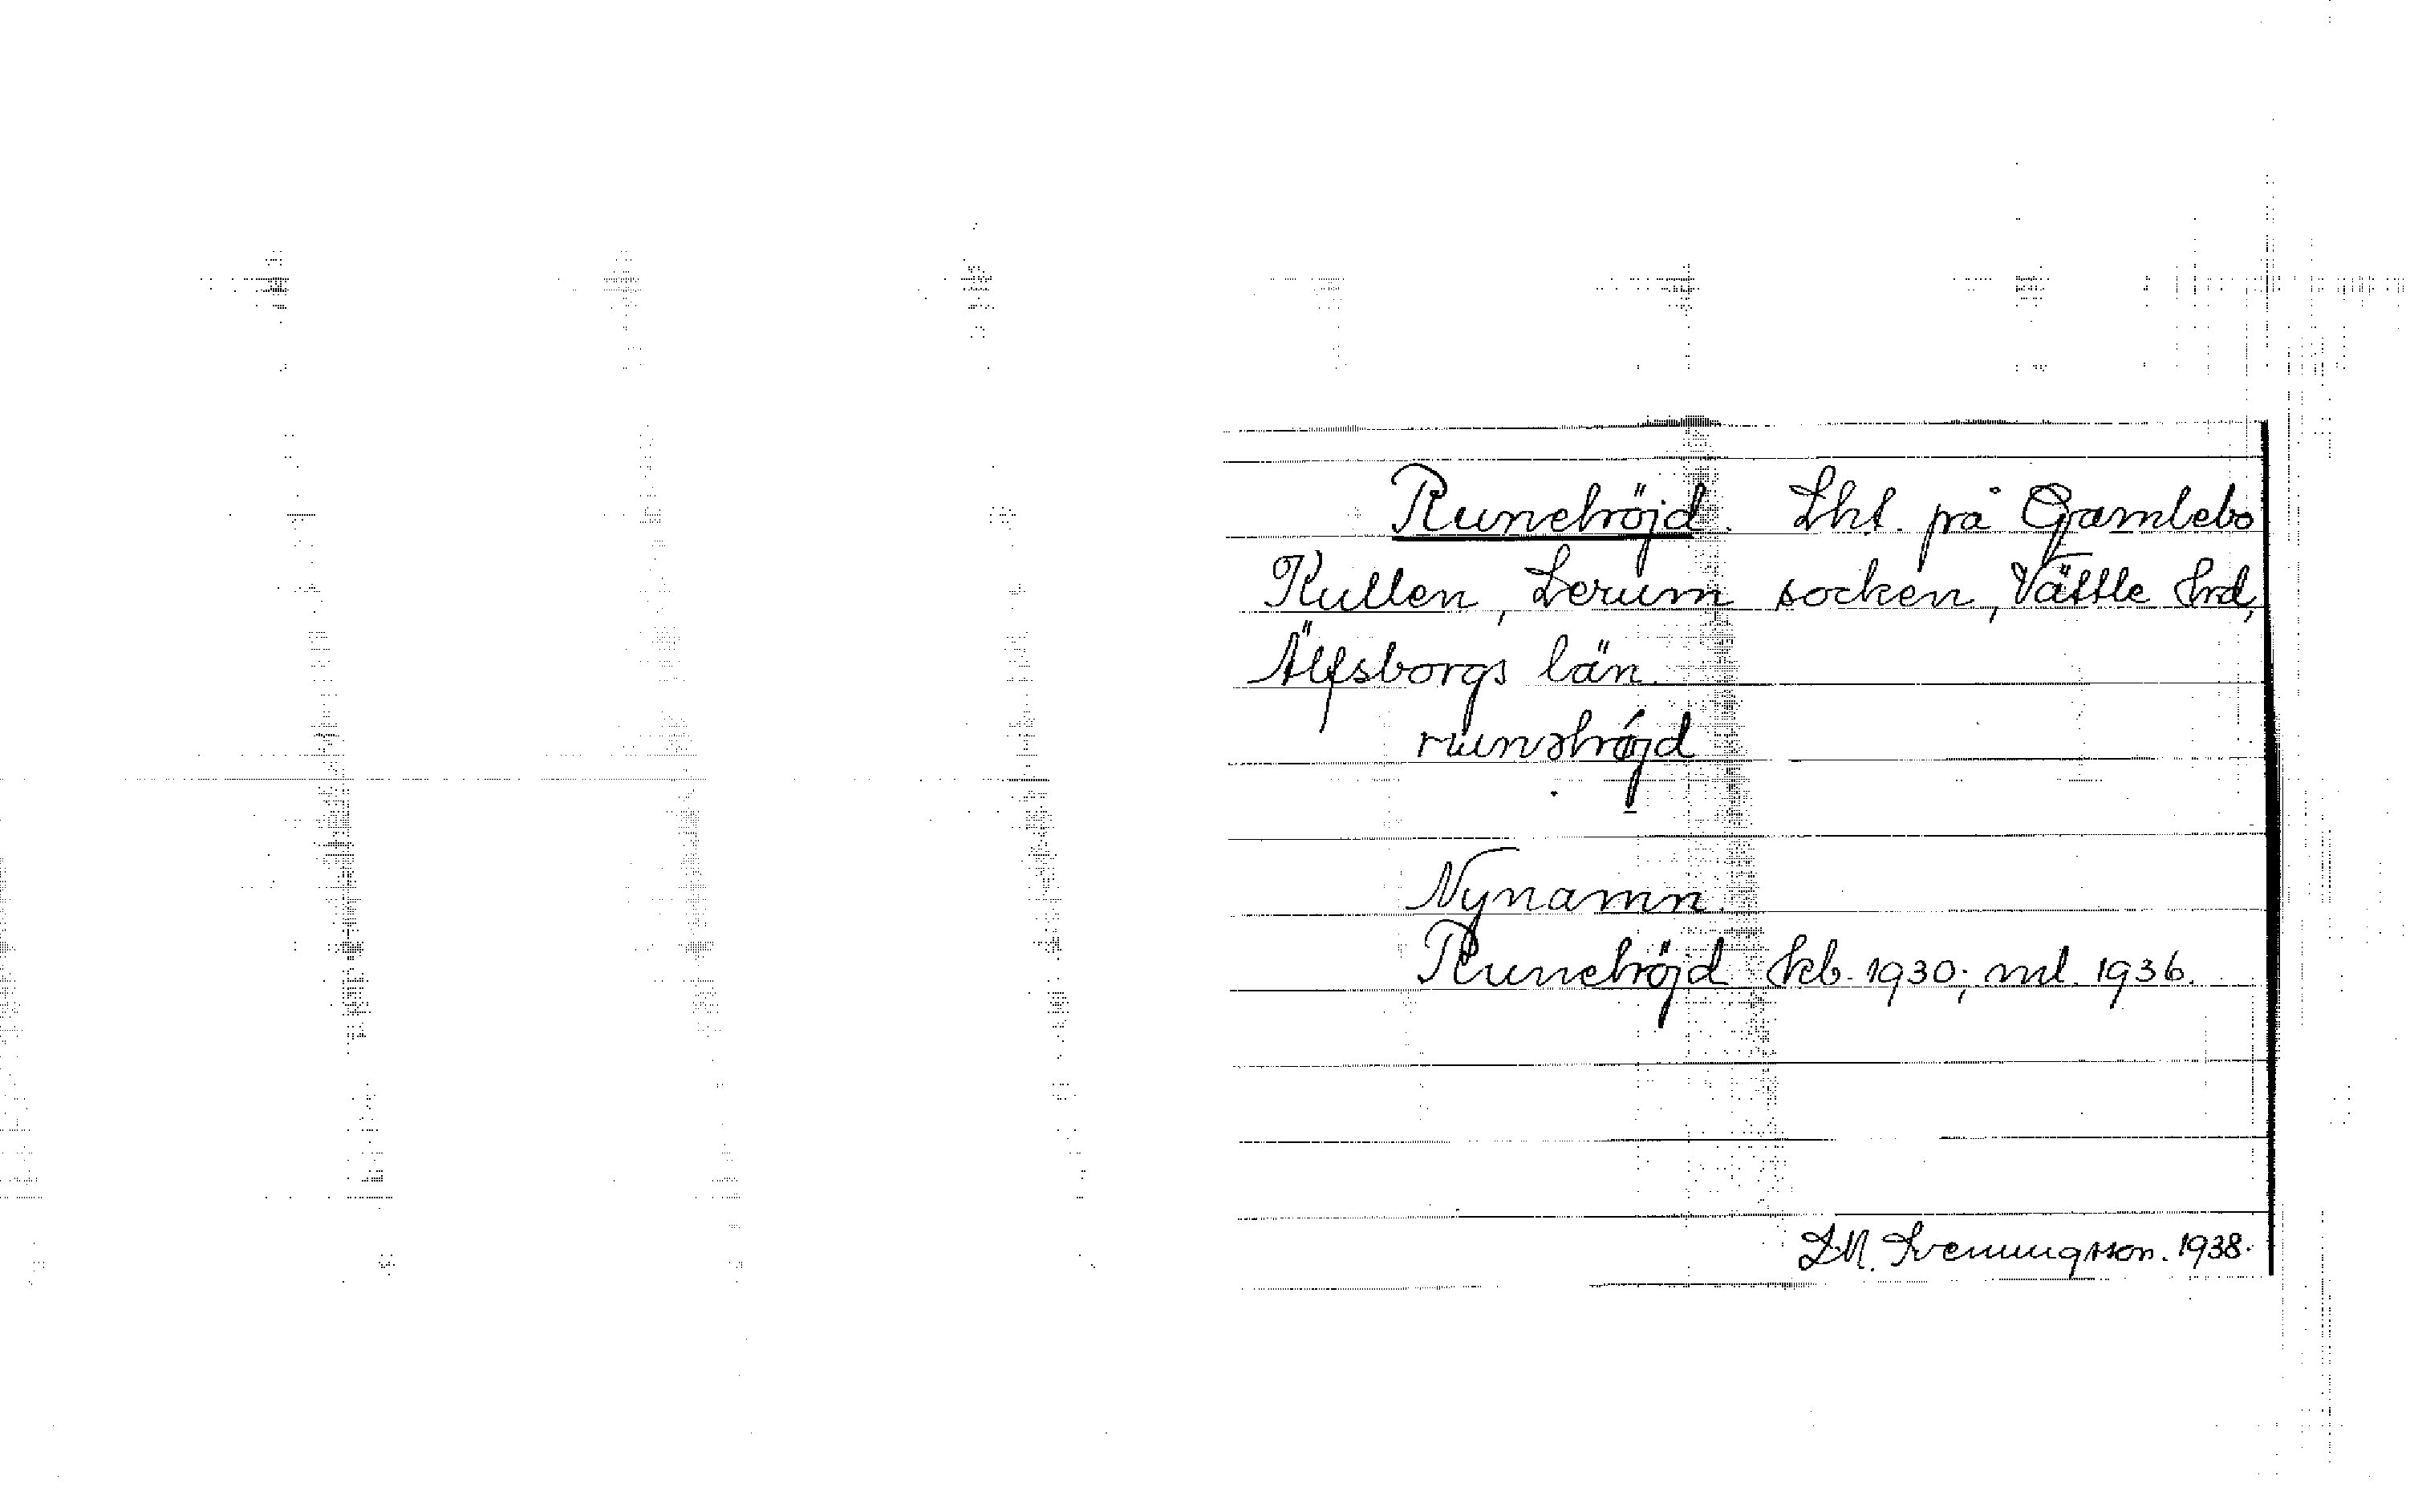 Runehöjd. Lht. på Gamlebo
Kullen, Lerum socken, Vättle hrd,
Älfsborgs län.
runəhöjd
Nynamn.
Runehöjd kb. 1930; ml. 1936.
D.M. Svenungsson. 1938.